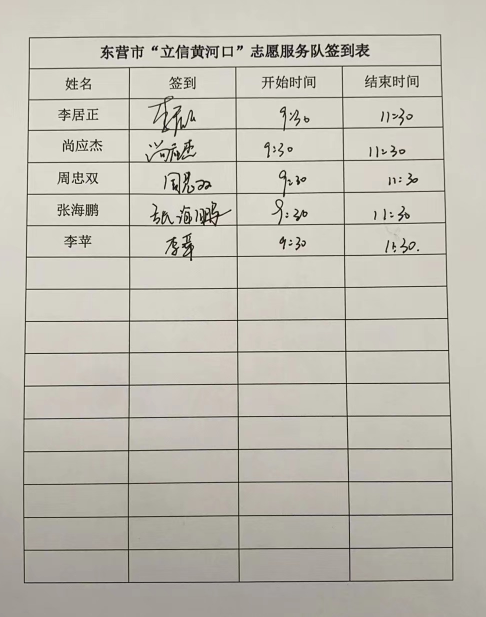 东营市“立信黄河口”志愿服务队签到表
姓名 签到 开始时间 结束时间
李居正 李居正 9:30 11:30
尚应杰 尚应杰 9:30 11:30
周忠双 周忠双 9:30 11:30
张海鹏 张海鹏 9:30 11:30
李苹 李苹 9:30 11:30.